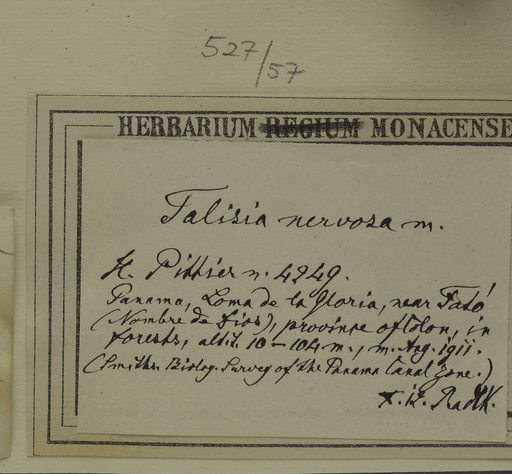 527/57
HERBARIUM REGIUM MONACENSE
Talisia nervosa m.
H. Pittier n. 4249.
Panama, Loma de la Gloria, near Fató
(Nombre de Dios), province of Colon, in
forests, altit. 10–104 m., m. Aug. 1911.
(Smiths. Biolog. Survey of the Panama Canal Zone.)
Radlk.